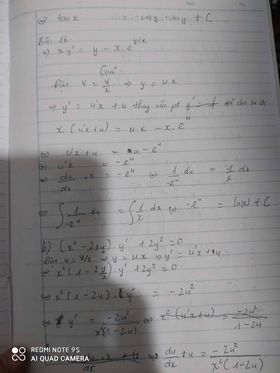 ⇔ tan x = -cosy - siny + C
Bài 16
a) xy' = y - x.e^{y/x}
Giải
Đặt u = y/x ⇒ y = u.x
⇒ y' = u'x + u thay vào pt đề cho ta có:
x(u'x+u) = u.x - x.e^u
⇔ u'x + u = u - e^u
⇔ u'x = -e^u
⇔ du/dx . x = -e^u ⇔ 1/-e^u du = 1/x dx
⇔ ∫ 1/-e^u du = ∫ 1/x dx ⇔ -e^u = ln|x| + C
b) (x² - 2xy).y' + 2y² = 0
Đặt u = y/x ⇒ y = u.x ⇒ y' = u'x + u
⇔ x²(1-2 y/x).y' + 2y² = 0
⇔ x²(1-2u).y' = -2u²
⇔ y' = -2u²/x²(1-2u) ⇔ x²(u'x+u) = -2u²/1-2u
⇔ du/dx + u = -2u²/x²(1-2u)
REDMI NOTE 9S
AI QUAD CAMERA